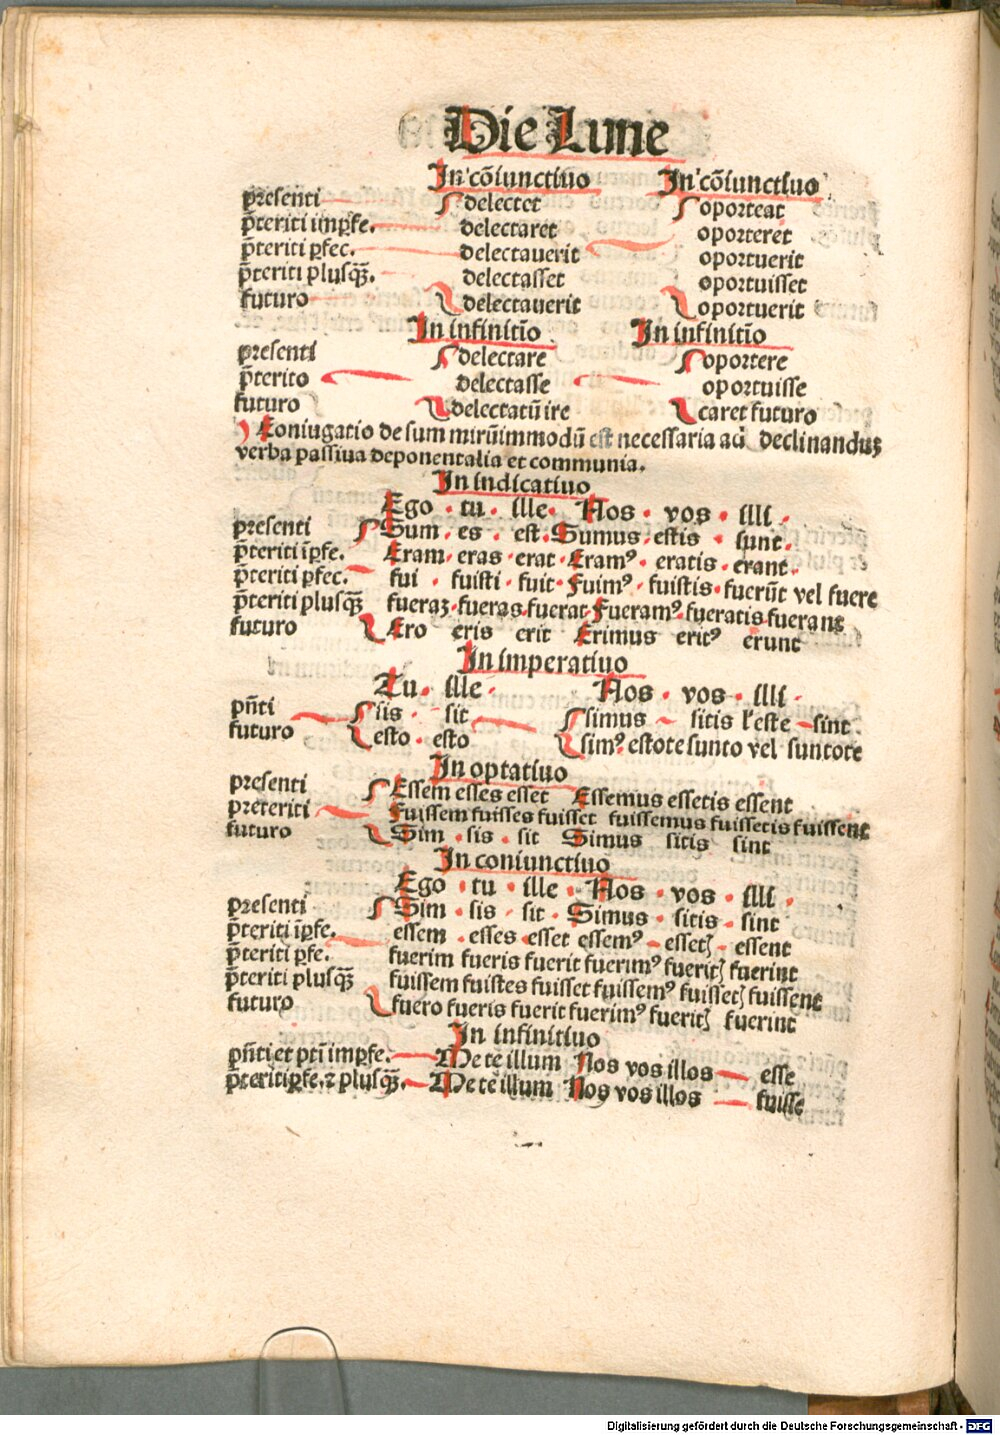 Die Lune
In cōiunctiuo In cōiunctiuo
presenti delectet oporteat
p̄teriti imꝑfe. delectaret oporteret
p̄teriti ꝑfec. delectauerit oportuerit
p̄teriti plusq̄ꝫ. delectasset oportuisset
futuro delectauerit oportuerit
In infinitio̅ In infinitio̅
presenti delectare oportere
p̄terito delectasse oportuisse
futuro delectatū ire caret futuro
Coniugatio de sum mirūimmodū est necessaria ad declinanduꝫ
verba passiua deponentalia et communia.
In indicatiuo
Ego · tu · ille · Nos · vos · illi ·
presenti Sum · es · est · Sumus · estis · sunt ·
p̄teriti īꝑfe. Eram · eras · erat · Eramꝰ · eratis · erant ·
p̄teriti ꝑfec. fui · fuisti · fuit · Fuimꝰ · fuistis · fuerūt vel fuere
p̄teriti plusq̄ꝫ fueraꝫ · fueras · fuerat · Fueramꝰ · fueratis · fuerant
futuro Ero eris erit Erimus eritꝰ erunt
In imperatiuo
Tu · ille · Nos · vos · illi ·
p̄nti sis · sit simus sitis l' este sint ·
futuro esto · esto simꝰ estote sunto vel suntote
In optatiuo
presenti Essem esses esset Essemus essetis essent
preteriti Fuissem fuisses fuisset fuissemus fuissetis fuissent
futuro Sim · sis · sit Simus sitis sint
In coniunctiuo
Ego · tu · ille · Nos · vos · illi
presenti Sim · sis · sit · Simus · sitis · sint
p̄teriti īꝑfe. essem · esses · esset essemꝰ essetꝭ · essent
p̄teriti ꝑfe. fuerim fueris fuerit fuerimꝰ fueritꝭ fuerint
p̄teriti plusq̄ꝫ fuissem fuistes fuisset fuissemꝰ fuissetꝭ fuissent
futuro fuero fueris fuerit fuerimꝰ fueritꝭ fuerint
In infinitiuo
p̄nti et p̄ti imꝑfe. Me te illum Nos vos illos esse
p̄teriti ꝑfe. ⁊ plusq̄ꝫ. Me te illum Nos vos illos fuisse
Digitalisierung gefördert durch die Deutsche Forschungsgemeinschaft - DFG